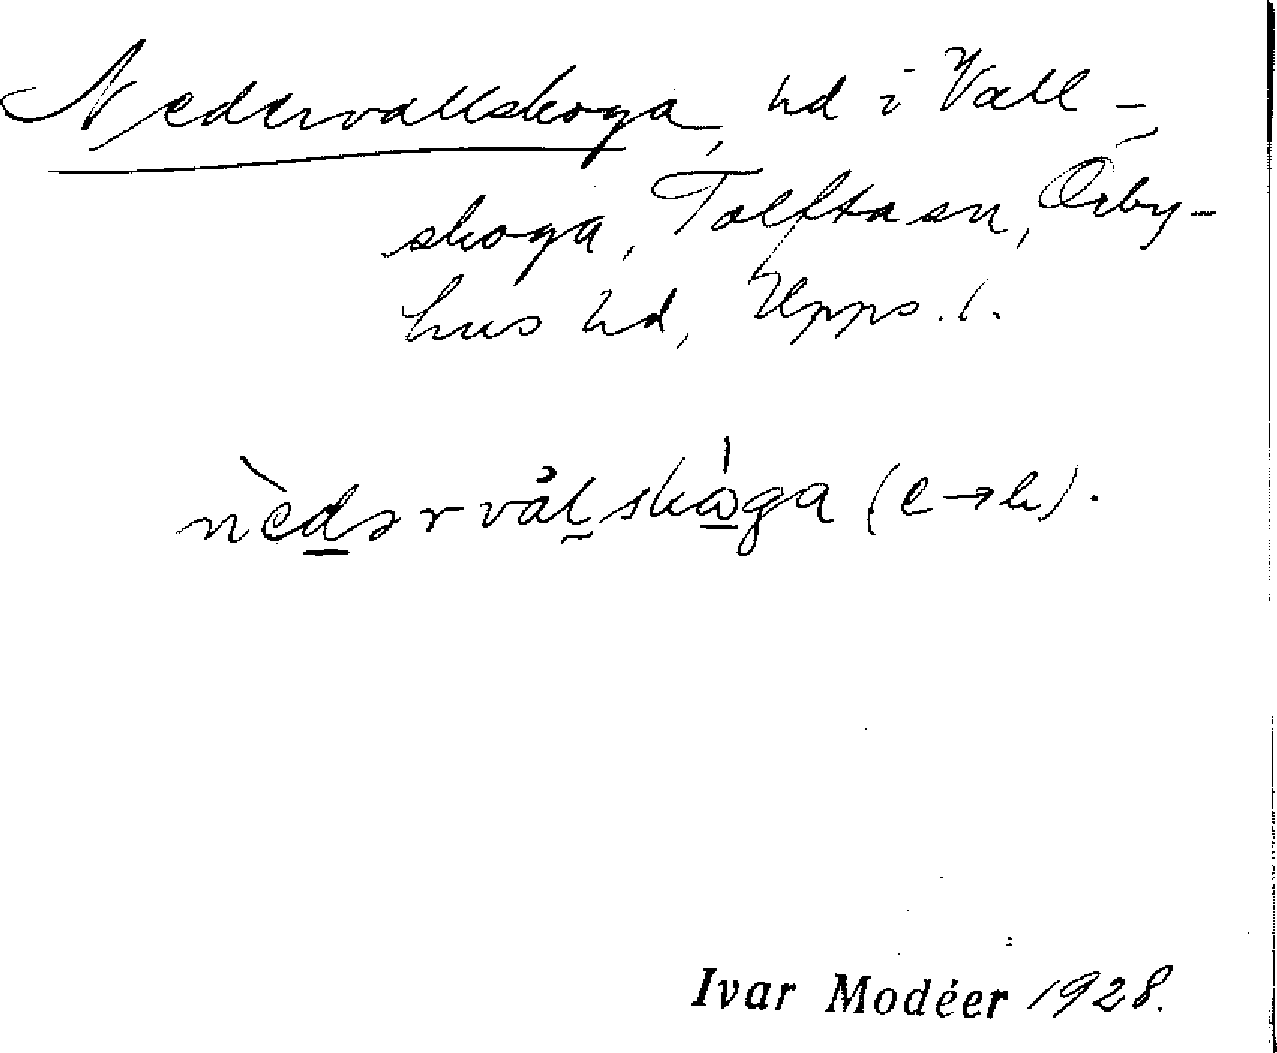 Nedervallskoga, hd i Vall-
skoga, Tolfta sn, Örby-
hus hd, Upps. l.
nèdərvålskòga (e→h).
Ivar Modéer 1928.